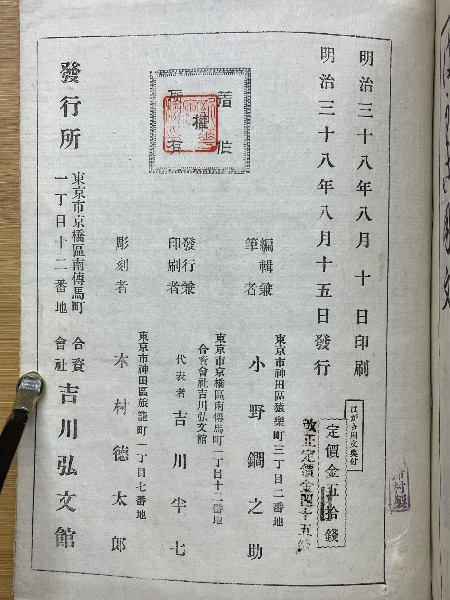 明治三十八年八月十日印刷
明治三十八年八月十五日發行
はがき用文奥付
定價金五拾錢
改正定價金四十五錢
著作
權
所有
編輯兼
筆者
東京市神田區猿樂町三丁目二番地
小野鐧之助
發行兼
印刷者
東京市京橋區南傳馬町一丁目十二番地
合資會社吉川弘文館
代表者 吉川半七
彫刻者
東京市神田區旅籠町一丁目七番地
木村德太郎
發行所
東京市京橋區南傳馬町
一丁目十二番地
合資
會社
吉川弘文館